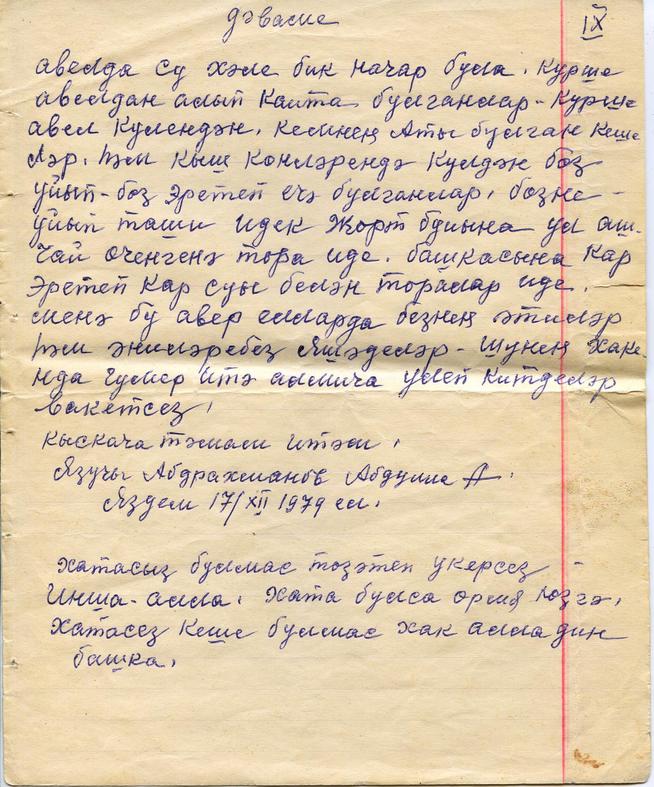 дәвасие
IX
авелда су хәле бик начар була. Курше
авелдан алып Кайта булганлар - Курше
авел Кулендән. Кешенең Аты булган Кеше
ләр. һәм Кыш Конләрендә Кулдән боз
уйып - боз Эретеп ечә булганлар. бозне -
уйып таши идек Жорт буына ул аш.
Чай оченгенә тора иде. башкасына Кар
Эретеп Кар суы белән торалар иде.
менә бу авер елларда безнең әтиләр
һәм әниләребез Яшәделәр - шунең хаке-
нда гумер итә алмича улеп Китделәр
вакетсез.
Кыскача тәмам итәм.
Язучы Абдрахманов Абдулла А.
Яздем 17/XII 1979 ел.
хатасыз булмас тозәтеп укерсез -
Инша-алла. хата булса орма йозгә.
хатасез Кеше булмас хак алла дин
башка.